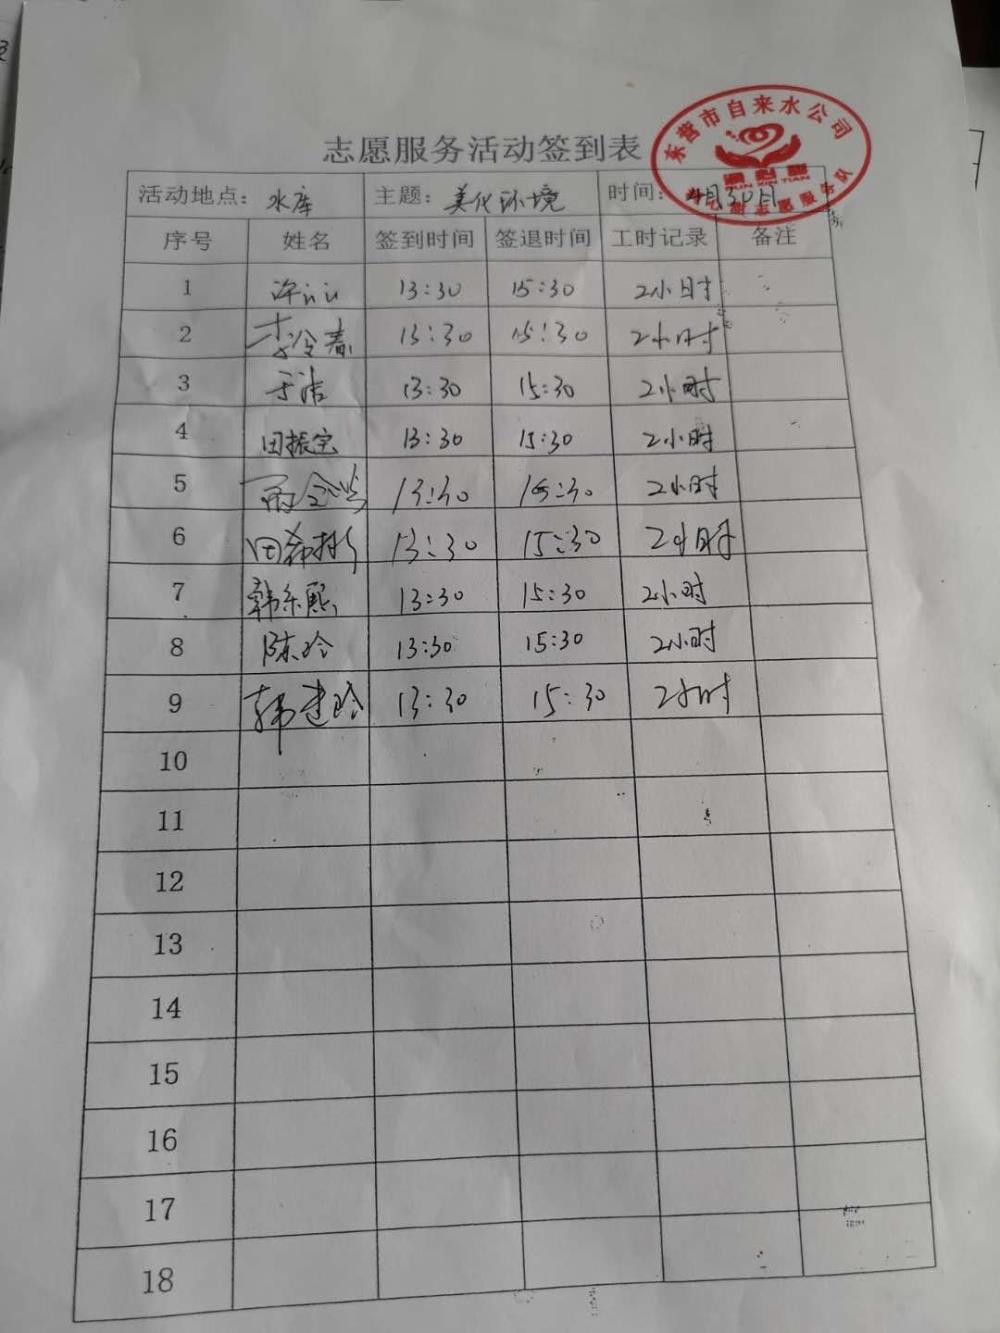 志愿服务活动签到表
东营市自来水公司
志愿服务队
活动地点：水库 主题：美化环境 时间：4月30日
序号 姓名 签到时间 签退时间 工时记录 备注
1 13:30 15:30 2小时
2 李冷春 13:30 15:30 2小时
3 于洁 13:30 15:30 2小时
4 田振宝 13:30 15:30 2小时
5 13:30 15:30 2小时
6 田希彬 13:30 15:30 2小时
7 韩东熙 13:30 15:30 2小时
8 陈玲 13:30 15:30 2小时
9 韩建玲 13:30 15:30 2小时
10
11
12
13
14
15
16
17
18